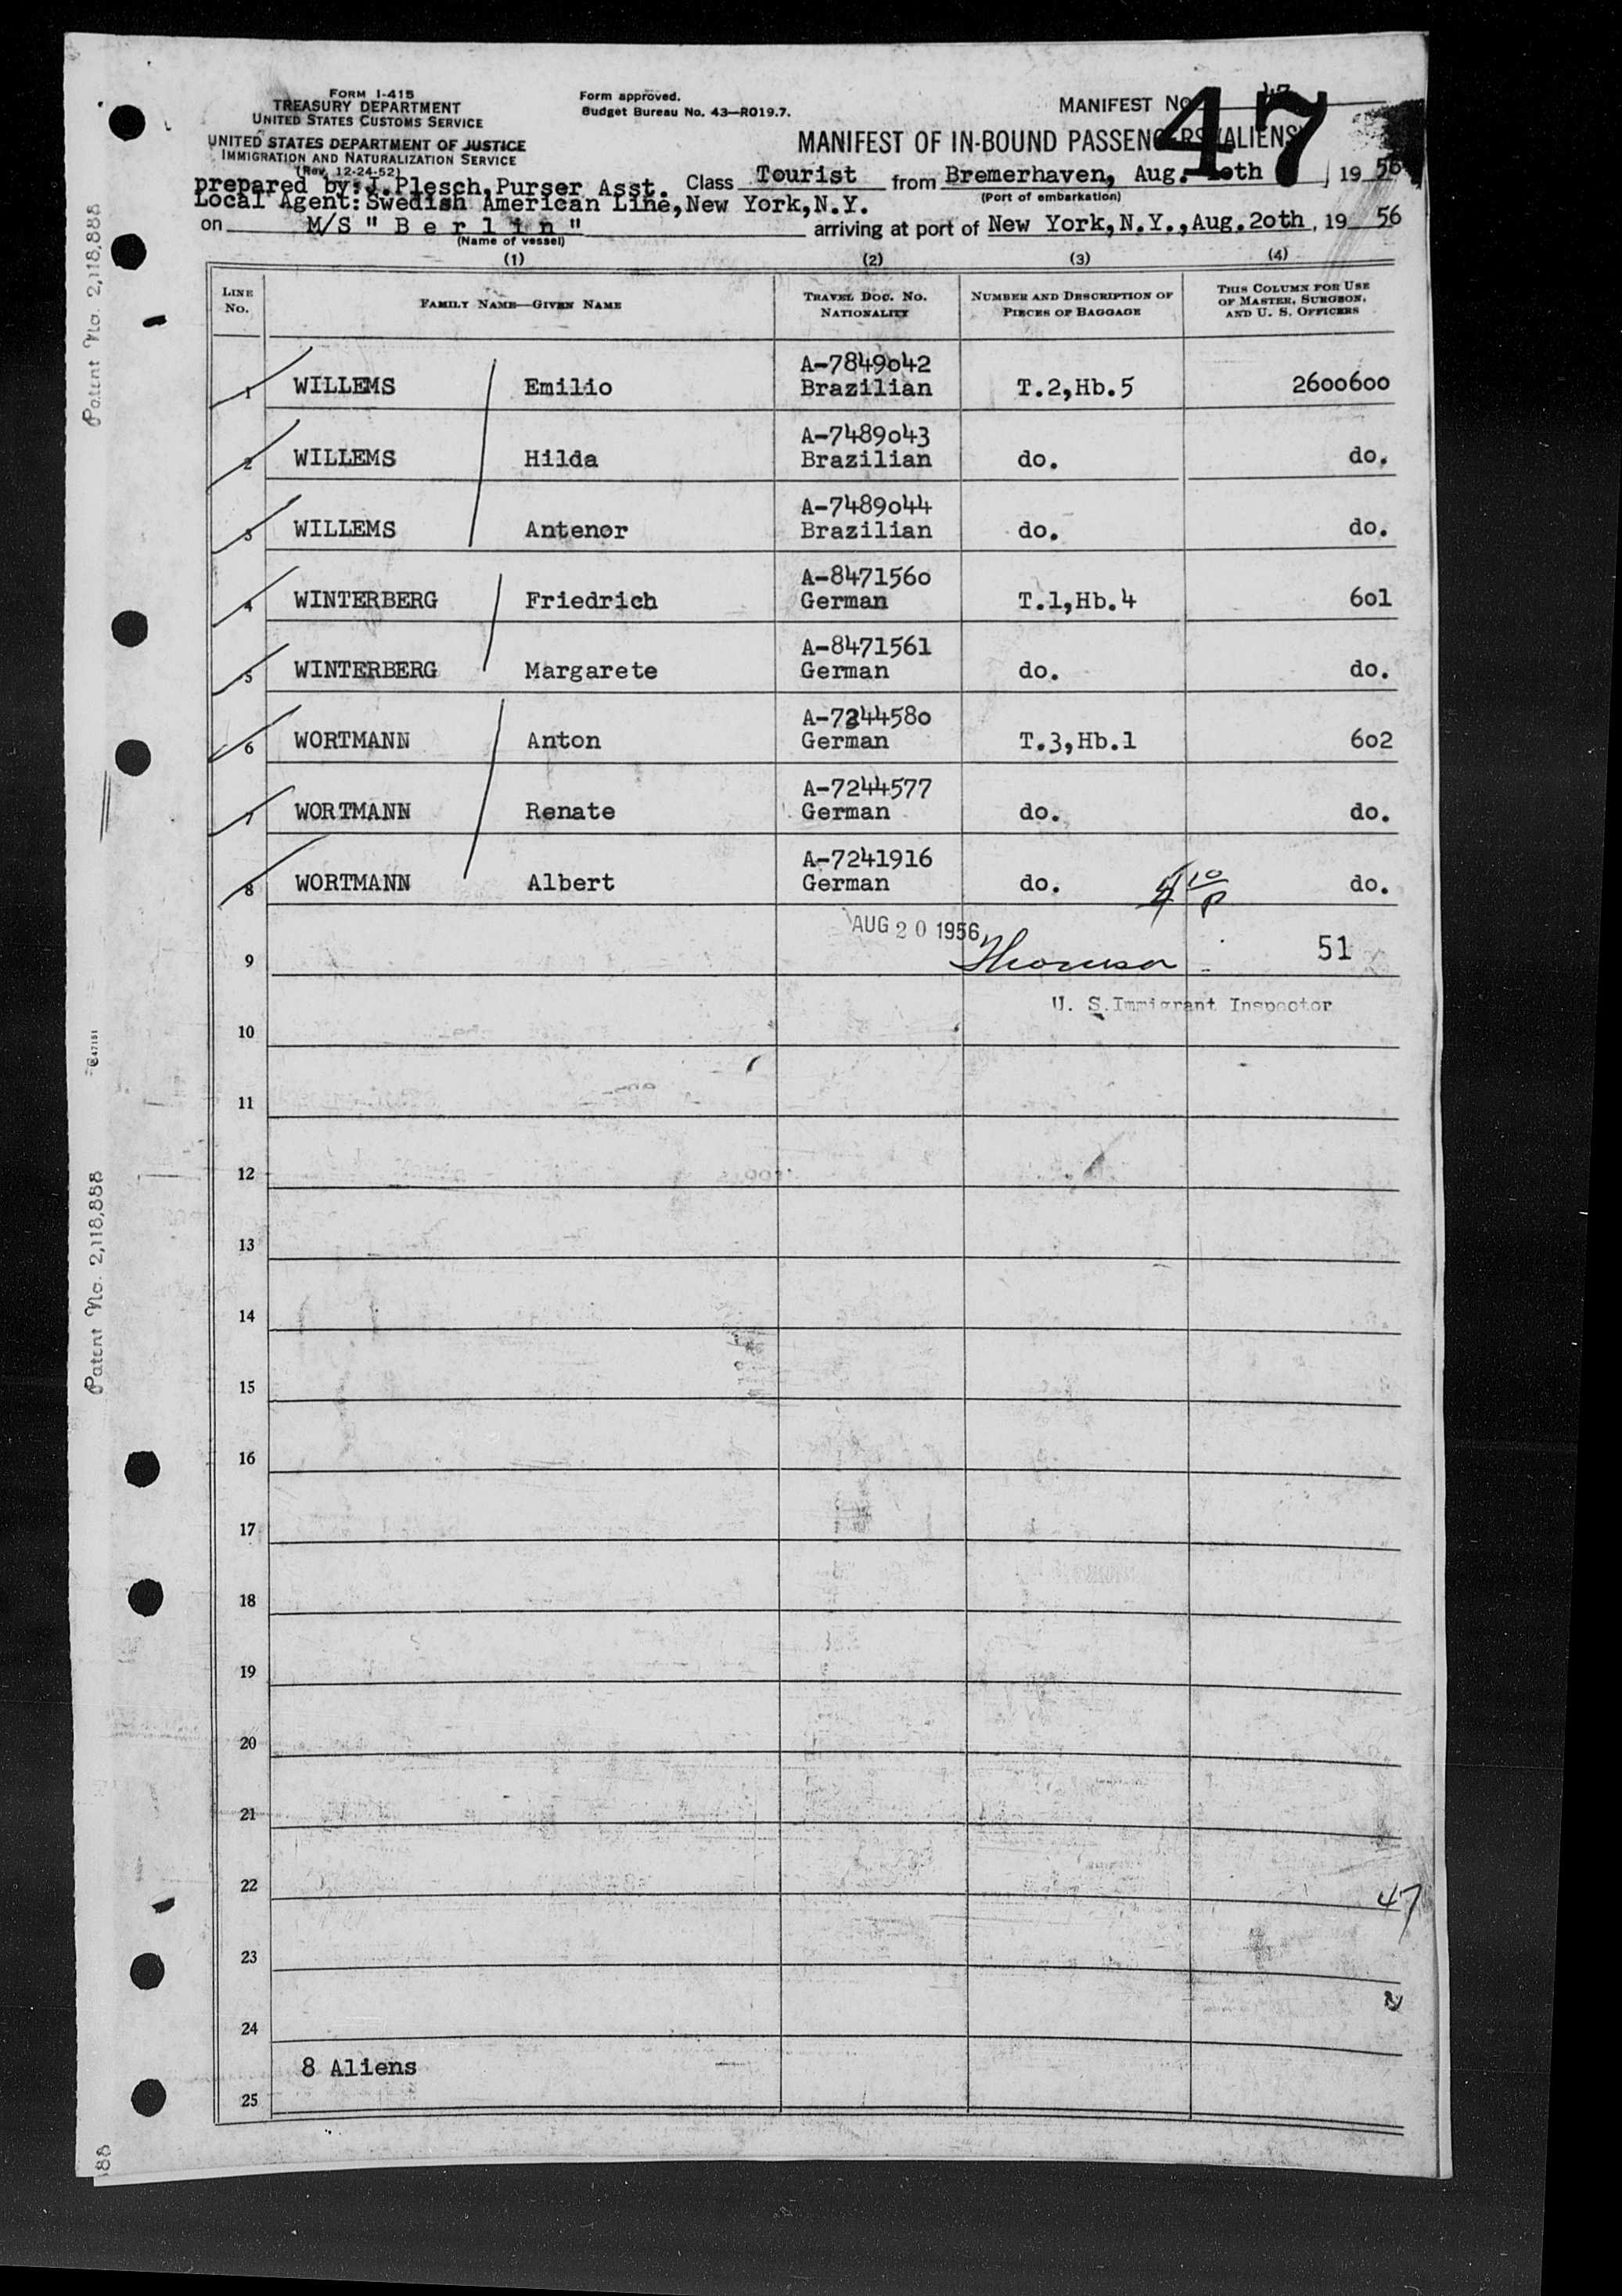 FORM I-415
TREASURY DEPARTMENT
UNITED STATES CUSTOMS SERVICE
UNITED STATES DEPARTMENT OF JUSTICE
IMMIGRATION AND NATURALIZATION SERVICE
(Rev. 12-24-52)
Form approved.
Budget Bureau No. 43—R019.7.
MANIFEST No. 47
47
MANIFEST OF IN-BOUND PASSENGERS (ALIENS)
prepared by: J.Plesch,Purser Asst. Class Tourist from Bremerhaven, Aug. oth, 19 56
(Port of embarkation)
Local Agent: Swedish American Line,New York,N.Y.
on M/S " B e r l i n " arriving at port of New York,N.Y.,Aug.2oth, 19 56
(Name of vessel)
(1) (2) (3) (4)
LINE No. FAMILY NAME—GIVEN NAME TRAVEL DOC. No. NATIONALITY NUMBER AND DESCRIPTION OF PIECES OF BAGGAGE THIS COLUMN FOR USE OF MASTER, SURGEON, AND U. S. OFFICERS
A-7849o42
1 WILLEMS Emilio Brazilian T.2,Hb.5 26oo6oo
A-7489o43
2 WILLEMS Hilda Brazilian do. do.
A-7489o44
3 WILLEMS Antenor Brazilian do. do.
A-847156o
4 WINTERBERG Friedrich German T.1,Hb.4 6o1
A-8471561
5 WINTERBERG Margarete German do. do.
A-724458o
6 WORTMANN Anton German T.3,Hb.1 6o2
A-7244577
7 WORTMANN Renate German do. do.
A-7241916
8 WORTMANN Albert German do. do.
AUG 20 1956
9 51
U. S. Immigrant Inspector
10
11
12
13
14
15
16
17
18
19
20
21
22
47
23
24
8 Aliens
25
Patent No. 2,118,888
Patent No. 2,118,888
88